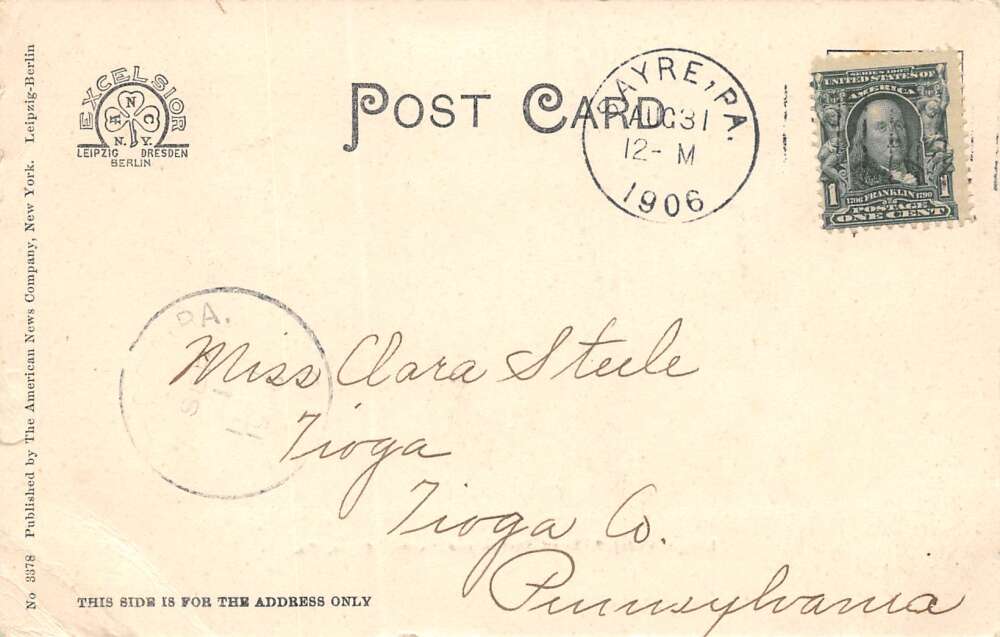 No 3378 Published by The American News Company, New York. Leipzig-Berlin
EXCELSIOR
A N C
N. Y.
LEIPZIG DRESDEN
BERLIN
POST CARD
SAYRE, PA.
AUG 31
12- M
1906
SERIES 1902
UNITED STATES OF
AMERICA
1 1
1706 FRANKLIN 1790
POSTAGE
ONE CENT
PA.
Miss Clara Steele
Tioga
Tioga Co.
Pennsylvania
THIS SIDE IS FOR THE ADDRESS ONLY